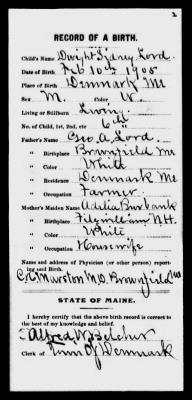 2
RECORD OF A BIRTH.
Child's Name Dwight Sidney Lord.
Date of Birth Feb 10th 1905
Place of Birth Denmark Me
Sex M. Color W.
Living or Stillborn Living
No. of Child, 1st, 2nd, etc 6th
Father's Name Geo. A. Lord.
" Birthplace Brownfield Me
" Color White
" Residence Denmark Me
" Occupation Farmer.
Mother's Maiden Name Adelia Burbank
" Birthplace Fitzwilliam N.H.
" Color White
" Occupation Housewife
Name and address of Physician (or other person) report-
ing said Birth.
Marston M.D. Brownfield Me
STATE OF MAINE.
I hereby certify that the above birth record is correct to
the best of my knowledge and belief.
Alfred W Belcher
Clerk of Town of Denmark